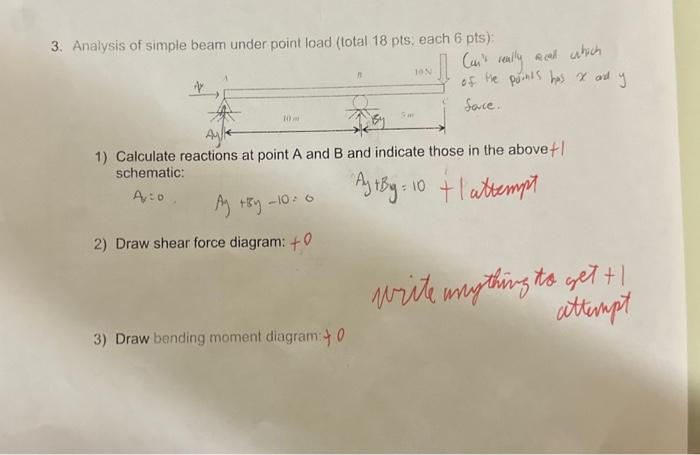 3. Analysis of simple beam under point load (total 18 pts; each 6 pts):
Can't really recall which
of the points has x and y
force.
A
B
10 N
C
10 m
5 m
Ay
By
1) Calculate reactions at point A and B and indicate those in the above +1
schematic:
Ay + By - 10 = 0
Ay + By = 10 +1 attempt
2) Draw shear force diagram: +0
write anything to get +1
attempt
3) Draw bending moment diagram: +0